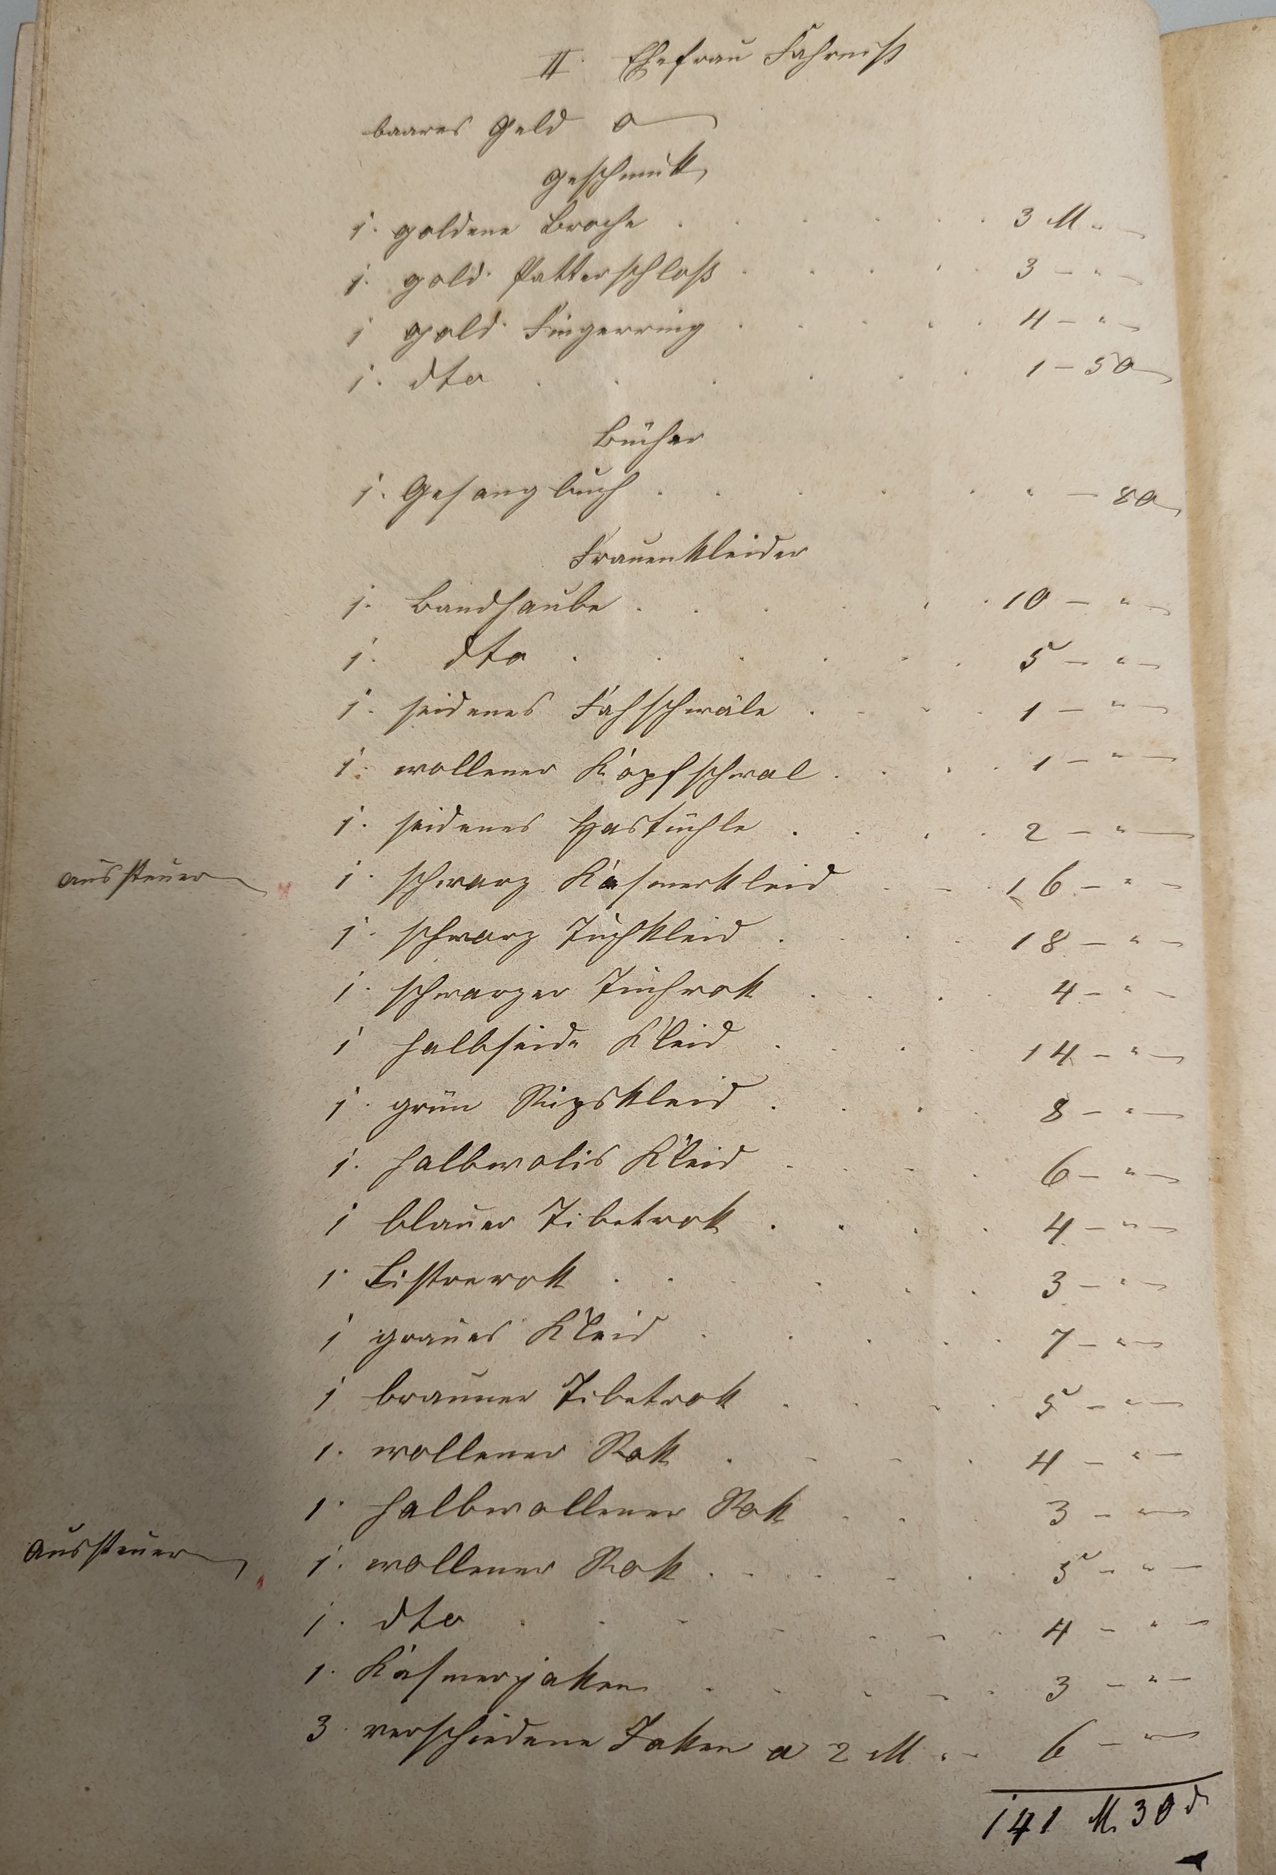 II. Ehefrau Fahrniß
baares Geld 0
Geschmuk
1. goldene Broche . . . . . . 3 M. "
1. gold. Patterschloß . . . . 3 - "
1 gold. Fingerring . . . . 4 - "
1. dto . . . . . . 1 - 50
Bücher
1. Gesangbuch . . . . . " - 80
Frauenkleider
1. Bandhaube . . . . . 10 - "
1. dto . . . . . . 5 - "
1. seidenes . . . . 1 - "
1. wollener Kopfschwal . . . . 1 - "
1. seidenes . . . . 2 - "
Aussteuer 1. schwarz Kasmerkleid . . . 16 - "
1. schwarz Tuchkleid . . . . 18 - "
1. schwarzer Tuchrok . . . . 4 - "
1 halbseide Kleid . . . . 14 - "
1. grün Ripskleid . . . . 8 - "
1. halbwolis Kleid . . . . 6 - "
1 blauer Tibetrok . . . . 4 - "
1. Listrerok . . . . . . 3 - "
1 graues Kleid . . . . . 7 - "
1 brauner Tibetrok . . . . 5 - "
1. wollener Rok . . . . 4 - "
1. halbwollener Rok . . . 3 - "
Aussteuer 1. wollener Rok . . . . . 5 - "
1. dto . . . . . . 4 - "
1. Kasmerjakken . . . . . 3 - "
3. verschiedene Jakken a 2 M. - 6 - "
141 M 30 d